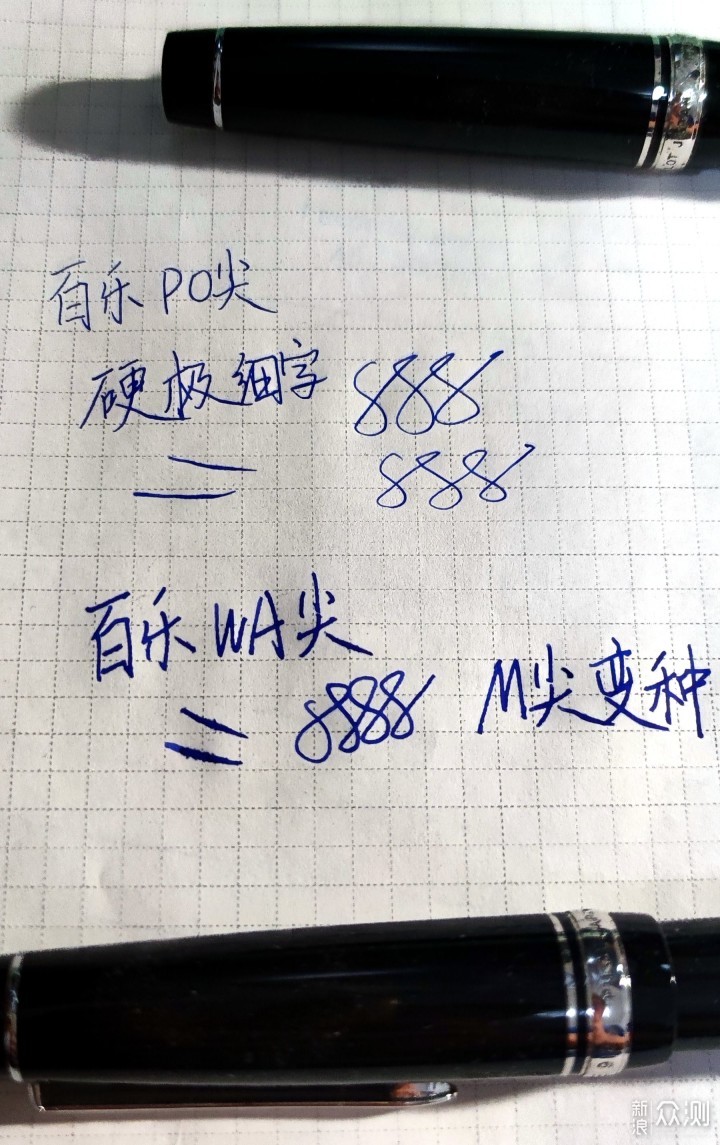 百乐 PO尖
硬极细字 888
888
百乐 WA尖
8888 M尖变种
新浪 众测